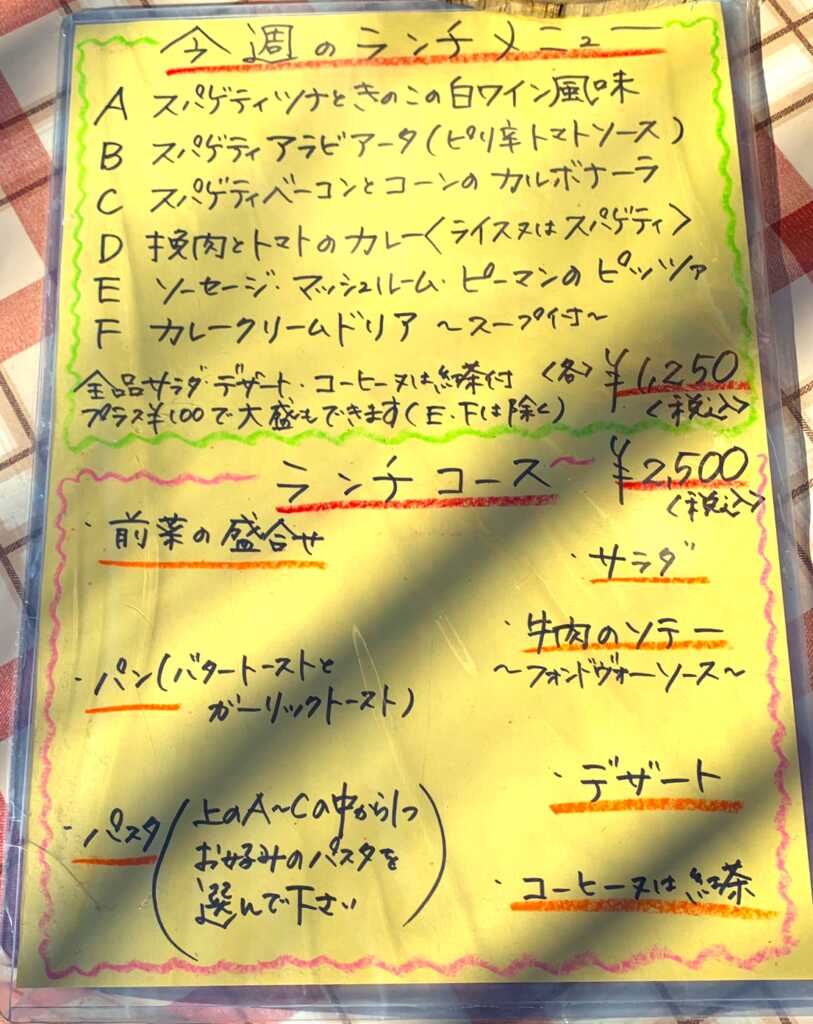 今週のランチメニュー
A スパゲティツナときのこの白ワイン風味
B スパゲティアラビアータ(ピリ辛トマトソース)
C スパゲティベーコンとコーンのカルボナーラ
D 挽肉とトマトのカレー〈ライス又はスパゲティ〉
E ソーセージ・マッシュルーム・ピーマンのピッツァ
F カレークリームドリア ～スープ付～
全品サラダ・デザート・コーヒー又は紅茶付 〈各〉 ¥1,250
プラス¥100で大盛もできます(E.Fは除く) 〈税込〉
ランチコース ¥2,500
〈税込〉
・前菜の盛合せ
・パン(バタートーストと
ガーリックトースト)
・パスタ(上のA～Cの中から1つ
お好みのパスタを
選んで下さい)
・サラダ
・牛肉のソテー
～フォンドヴォーソース～
・デザート
・コーヒー又は紅茶